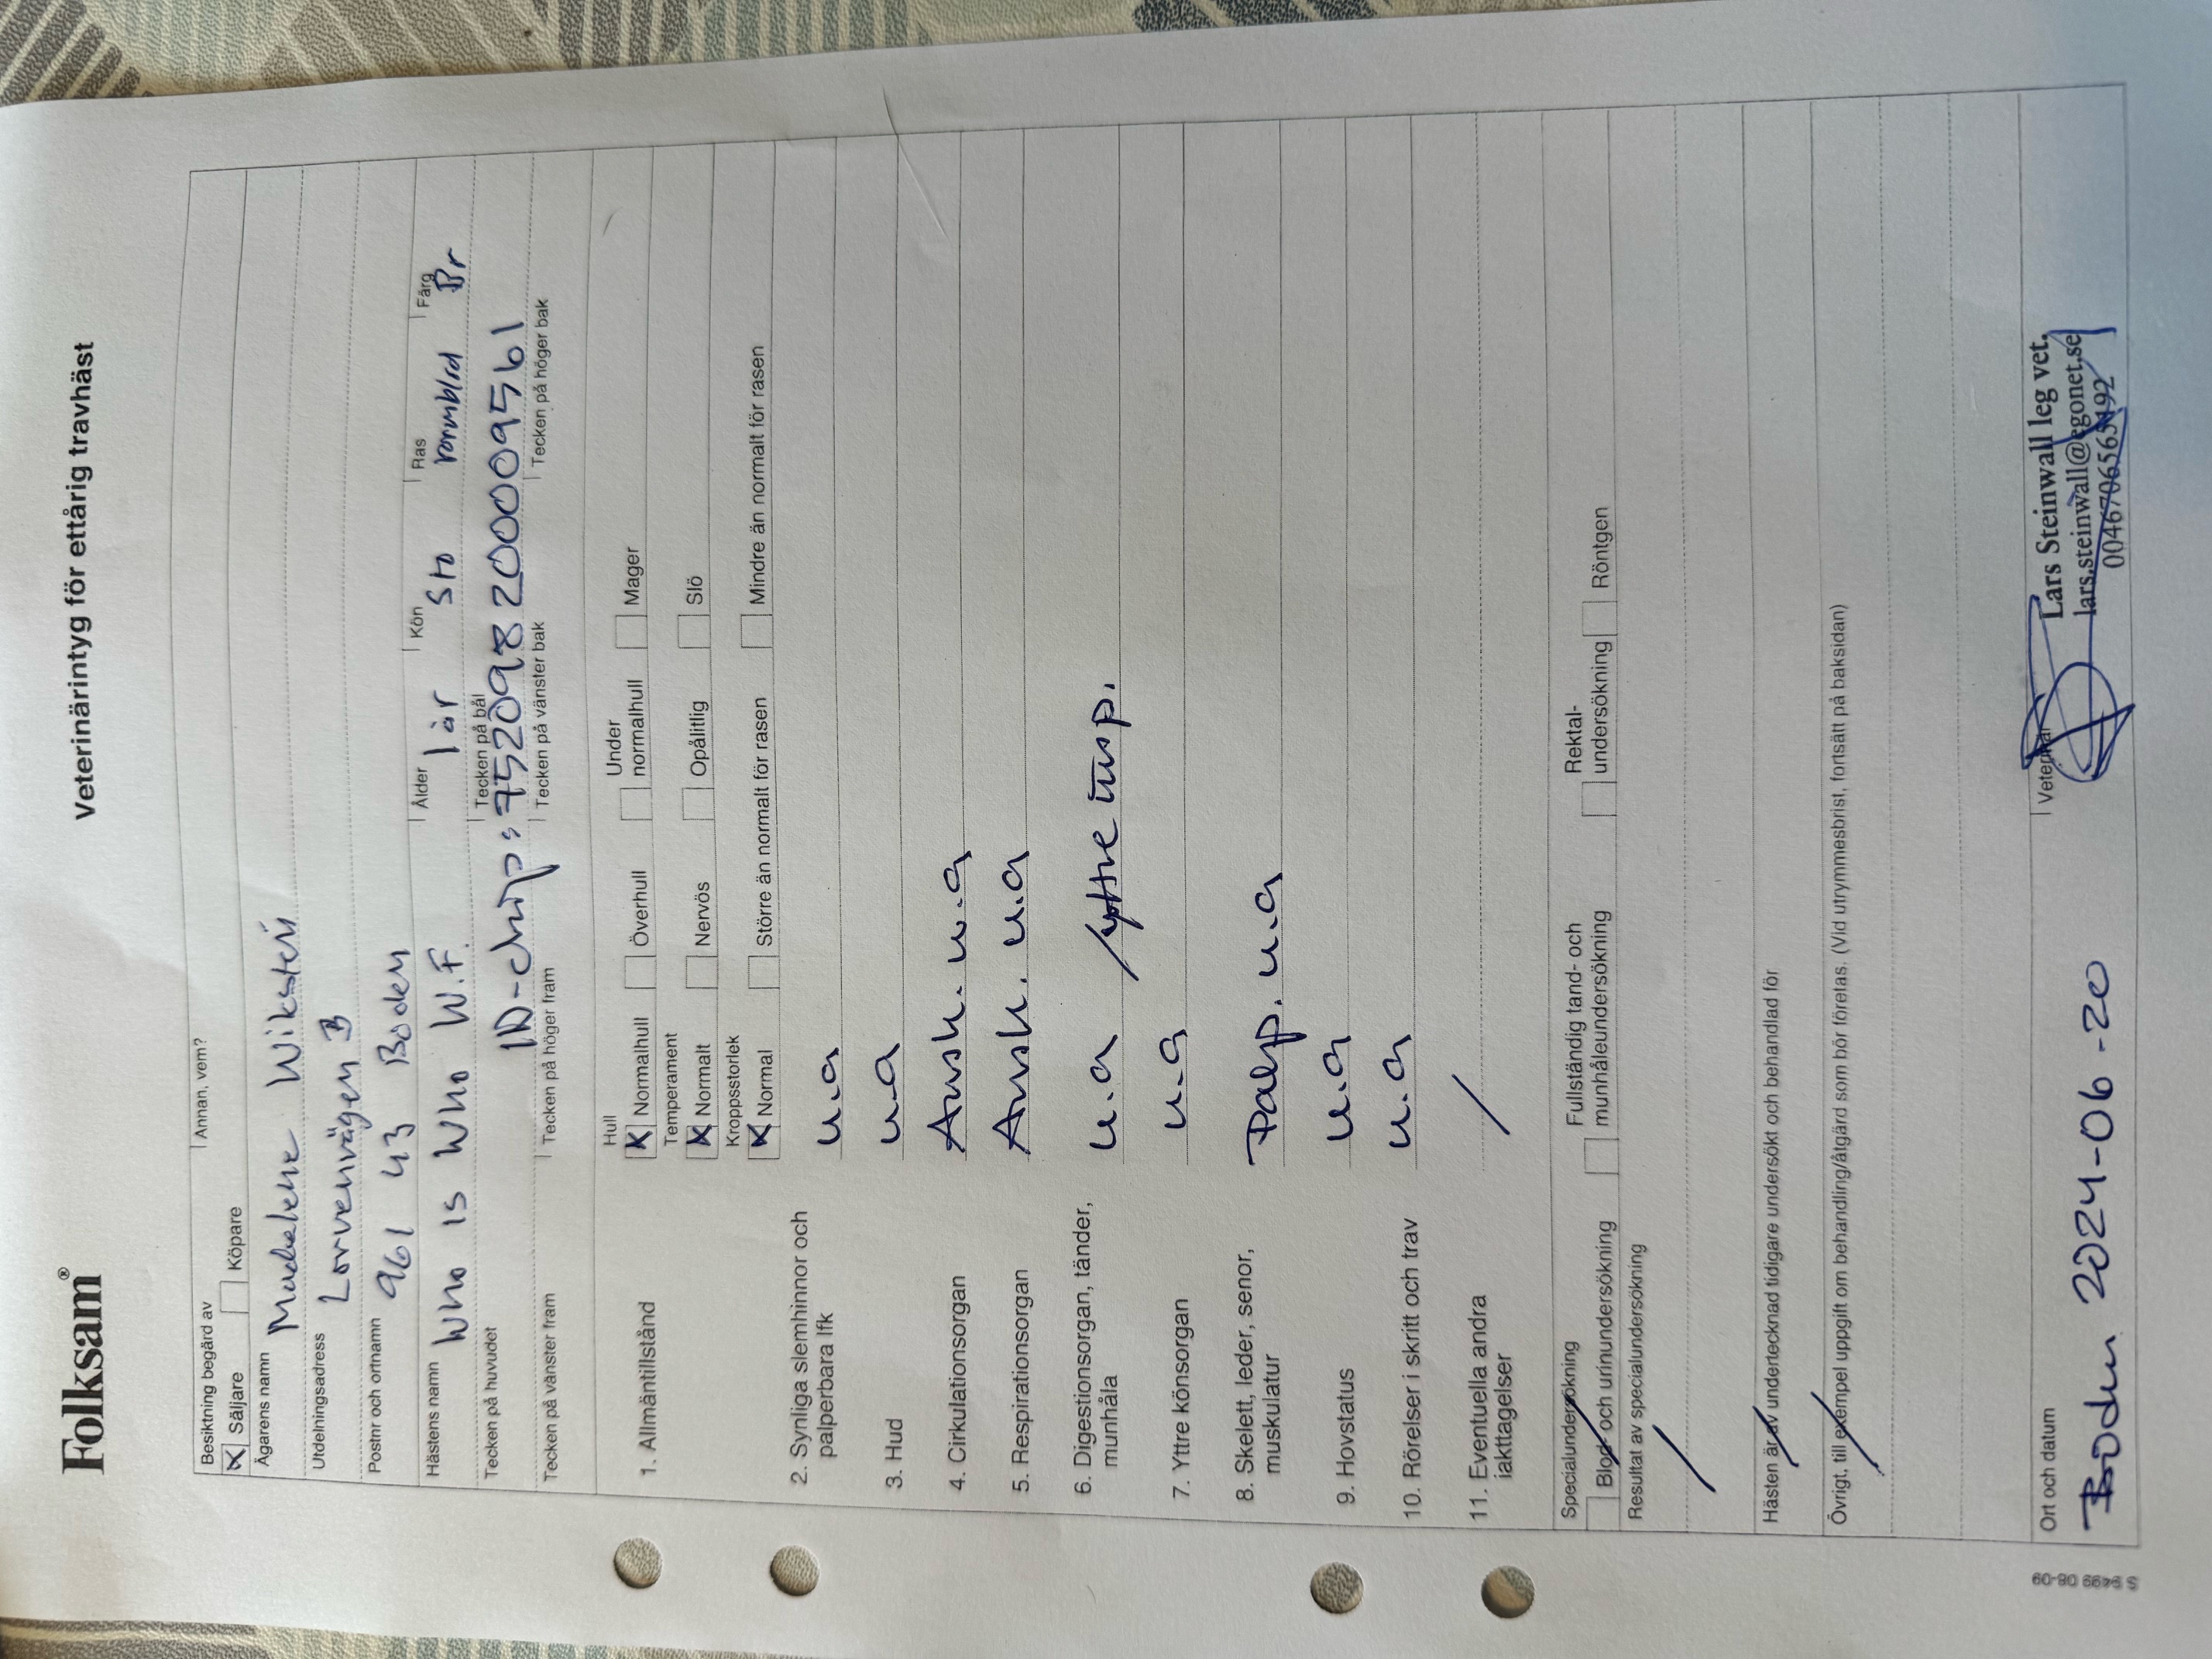 Folksam®
Veterinärintyg för ettårig travhäst
Besiktning begärd av
Annan, vem?
X Säljare Köpare
Ägarens namn
Madelene Wiksten
Utdelningsadress
Postnr och ortnamn
961 43 Boden
Hästens namn Ålder Kön Ras Färg
Who is Who W.F. 1 år Sto varmblod Br
Tecken på huvudet Tecken på bål
ID-chip: 752098200009561
Tecken på vänster fram Tecken på höger fram Tecken på vänster bak Tecken på höger bak
1. Allmäntillstånd
Hull
X Normalhull Överhull Under normalhull Mager
Temperament
X Normalt Nervös Opålitlig Slö
Kroppsstorlek
X Normal Större än normalt för rasen Mindre än normalt för rasen
2. Synliga slemhinnor och
palperbara lfk u.a
3. Hud u.a
4. Cirkulationsorgan Ausk. u.a
5. Respirationsorgan Ausk. u.a
6. Digestionsorgan, tänder,
munhåla u.a / yttre insp.
7. Yttre könsorgan u.a
8. Skelett, leder, senor,
muskulatur Palp. u.a
9. Hovstatus u.a
10. Rörelser i skritt och trav u.a
11. Eventuella andra
iakttagelser /
Specialundersökning
Blod- och urinundersökning Fullständig tand- och munhåleundersökning Rektal-undersökning Röntgen
Resultat av specialundersökning
Hästen är av undertecknad tidigare undersökt och behandlad för
Övrigt, till exempel uppgift om behandling/åtgärd som bör företas. (Vid utrymmesbrist, fortsätt på baksidan)
Ort och datum
Boden 2024-06-20
Veterinär
Lars Steinwall leg vet.
lars.steinwall@egonet.se
S 9499 08-09